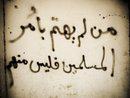 من لم يهتم بأمر
المسلمين فليس منهم